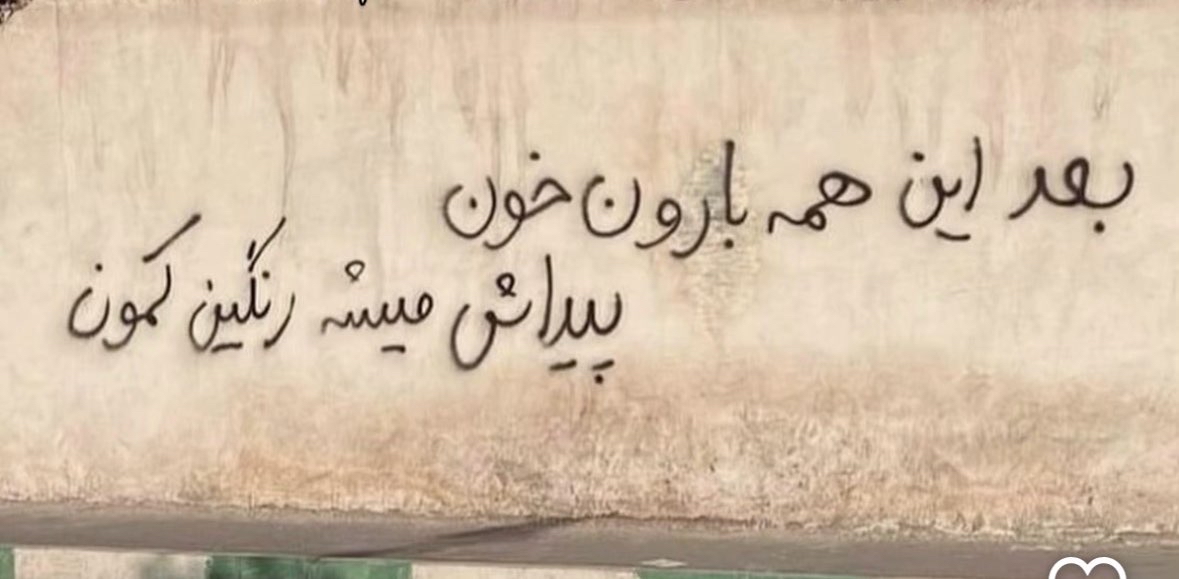 بعد این همه بارون خون
پیداش میشه رنگین کمون